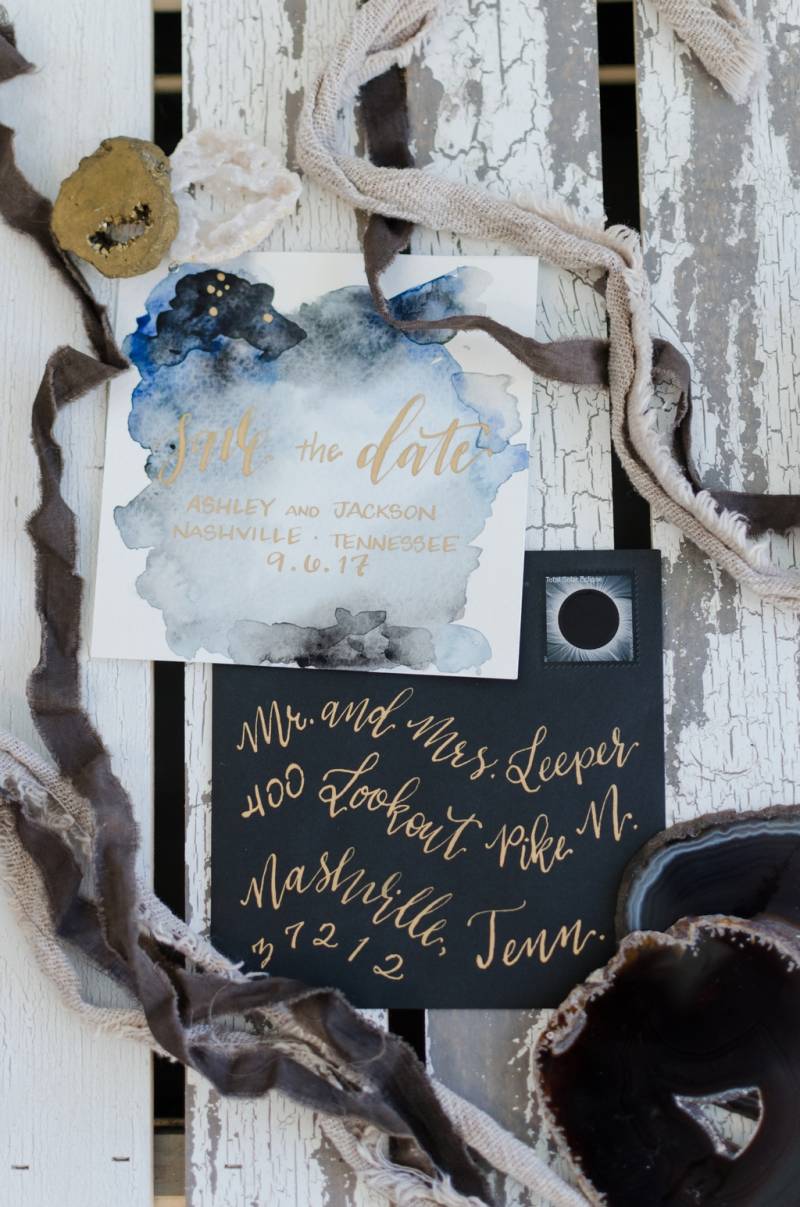 Save the date
ASHLEY AND JACKSON
NASHVILLE · TENNESSEE
9.6.17
Total Solar Eclipse
Mr. and Mrs. Leeper
400 Lookout Pike N.
Nashville, Tenn.
37212